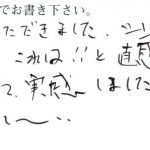 でお書き下さい。
ただきました。
これは!!と直感
て、実感しました